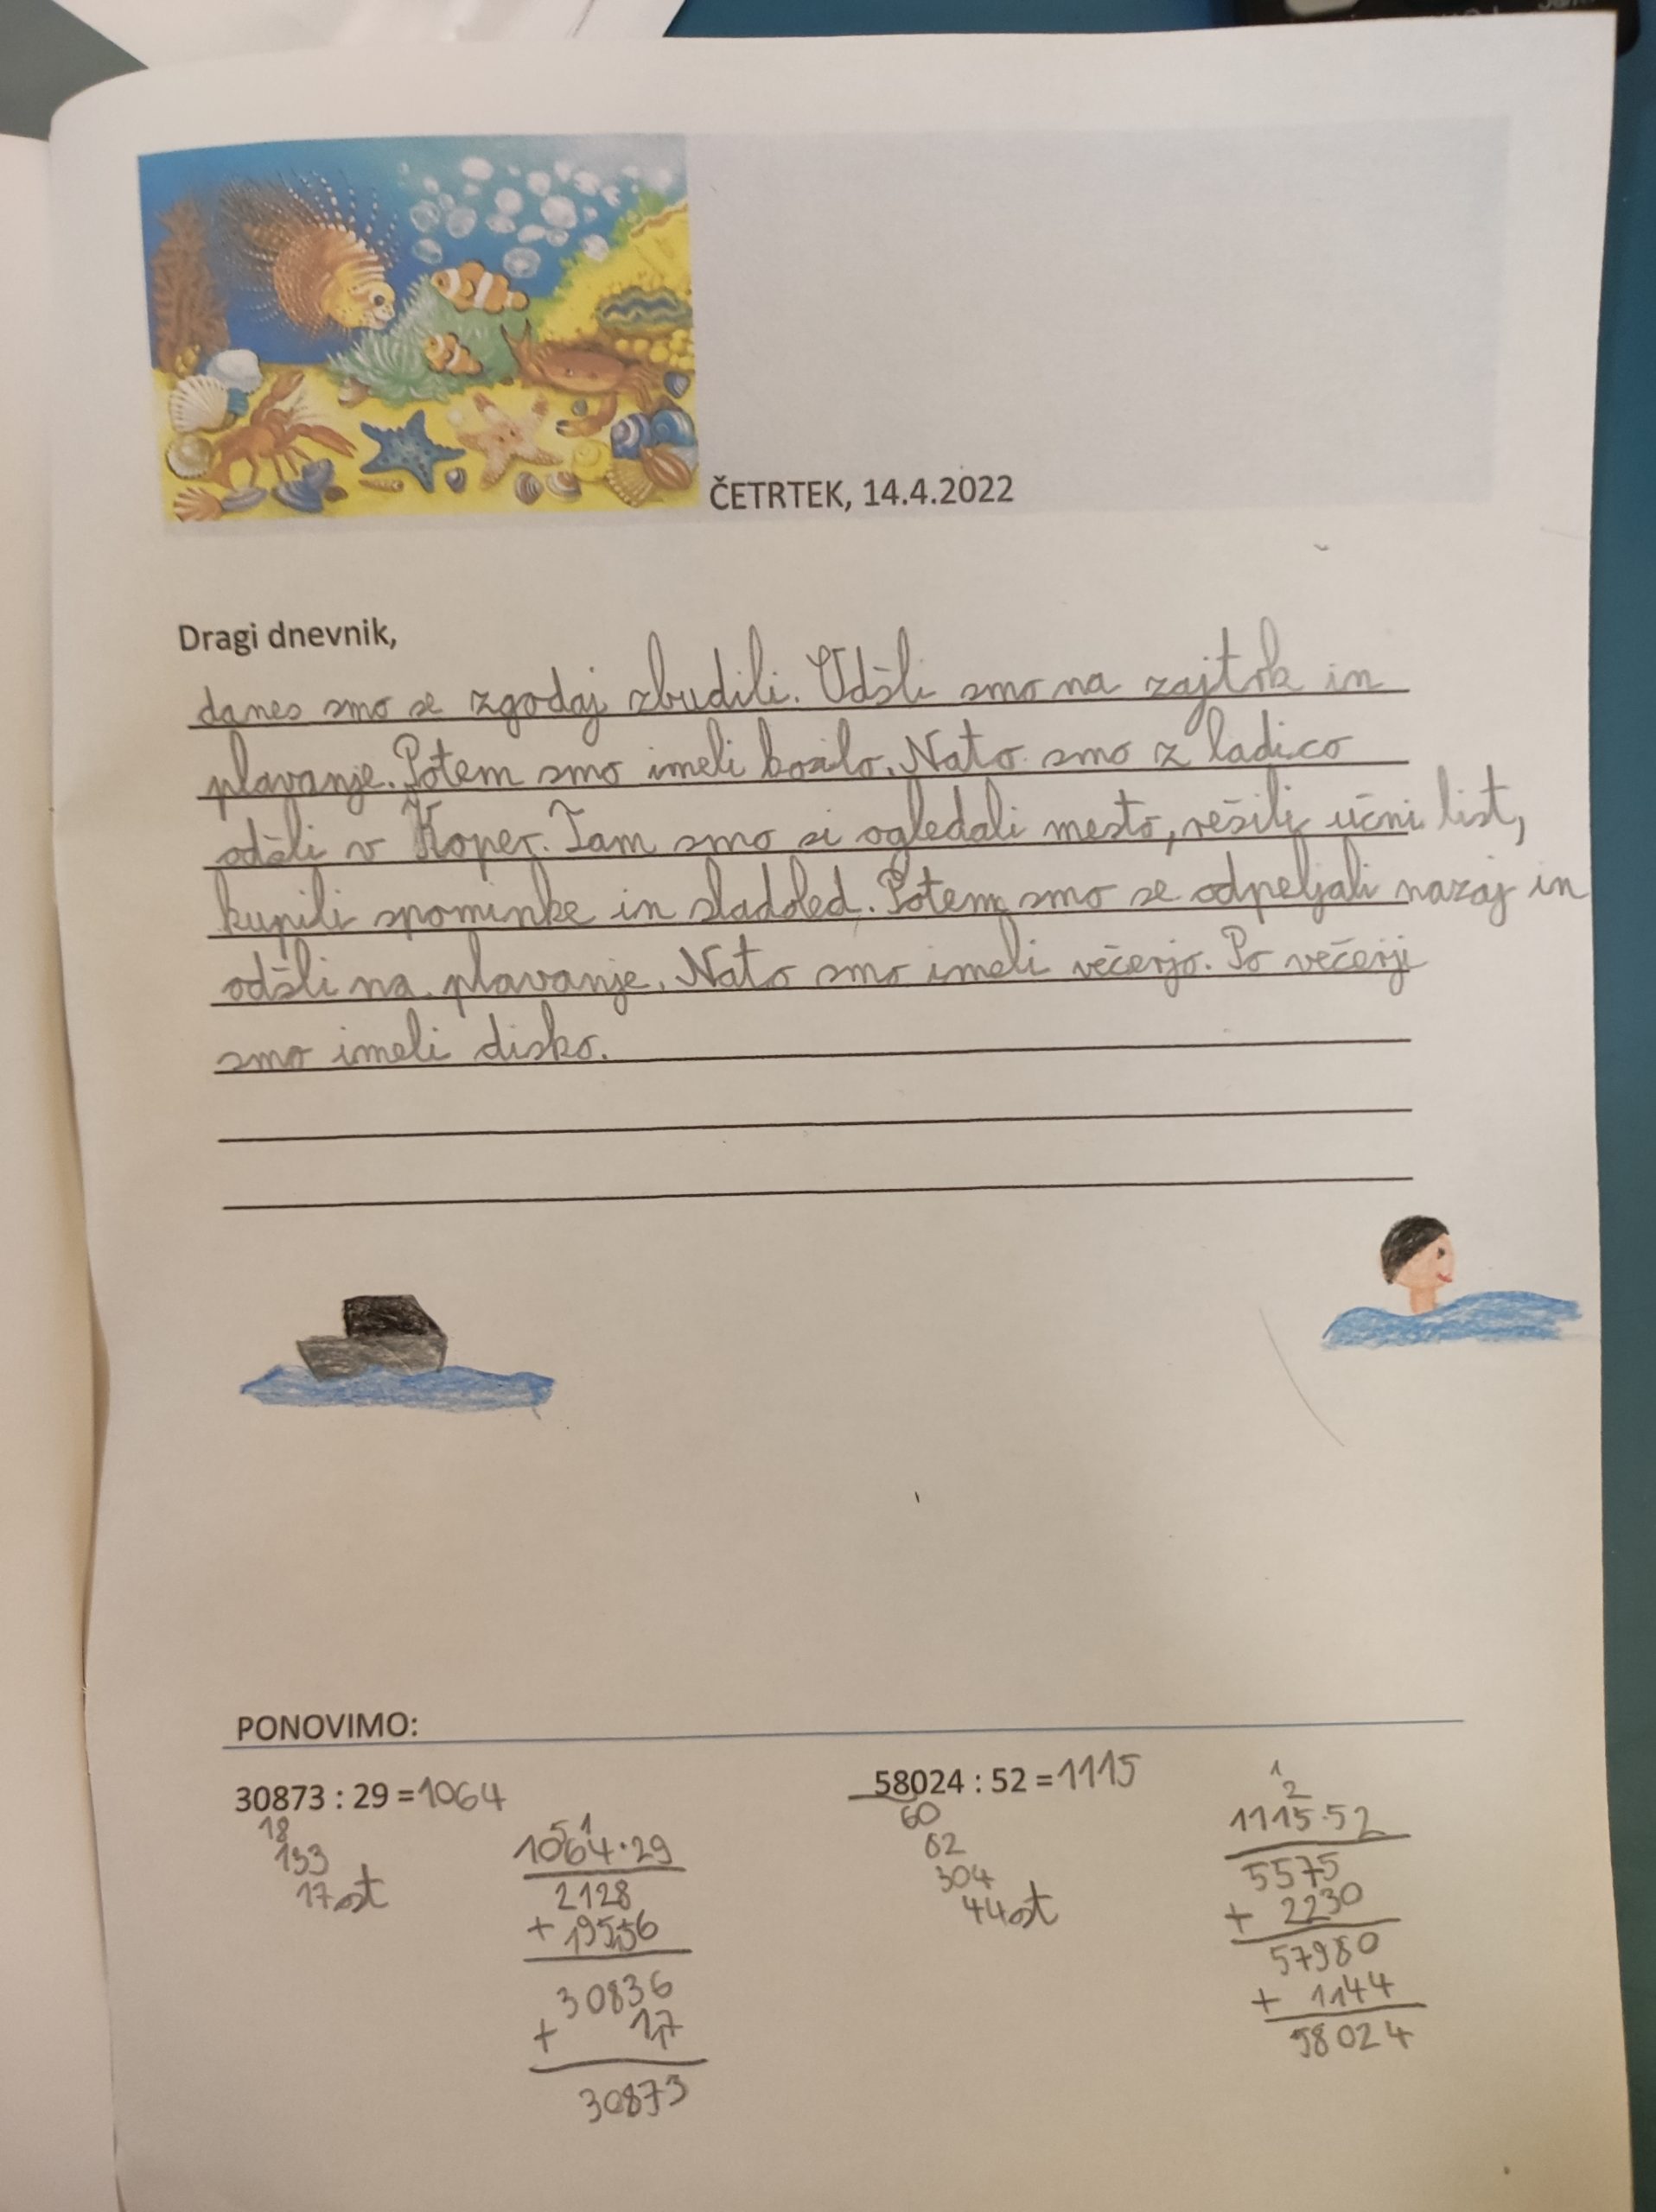 ČETRTEK, 14.4.2022
Dragi dnevnik,
danes smo se zgodaj zbudili. Odšli smo na zajtrk in
plavanje. Potem smo imeli kosilo. Nato smo z ladico
odšli v Koper. Tam smo si ogledali mesto, rešili učni list,
kupili spominke in sladoled. Potem smo se odpeljali nazaj in
odšli na plavanje. Nato smo imeli večerjo. Po večerji
smo imeli disko.
PONOVIMO:
30873 : 29 = 1064
18
133
17 ost
51
1064·29
2128
+ 19536
30836
+ 17
30873
58024 : 52 = 1115
60
82
304
44 ost
1
2
1115·52
5575
+ 2230
57980
+ 1144
58024